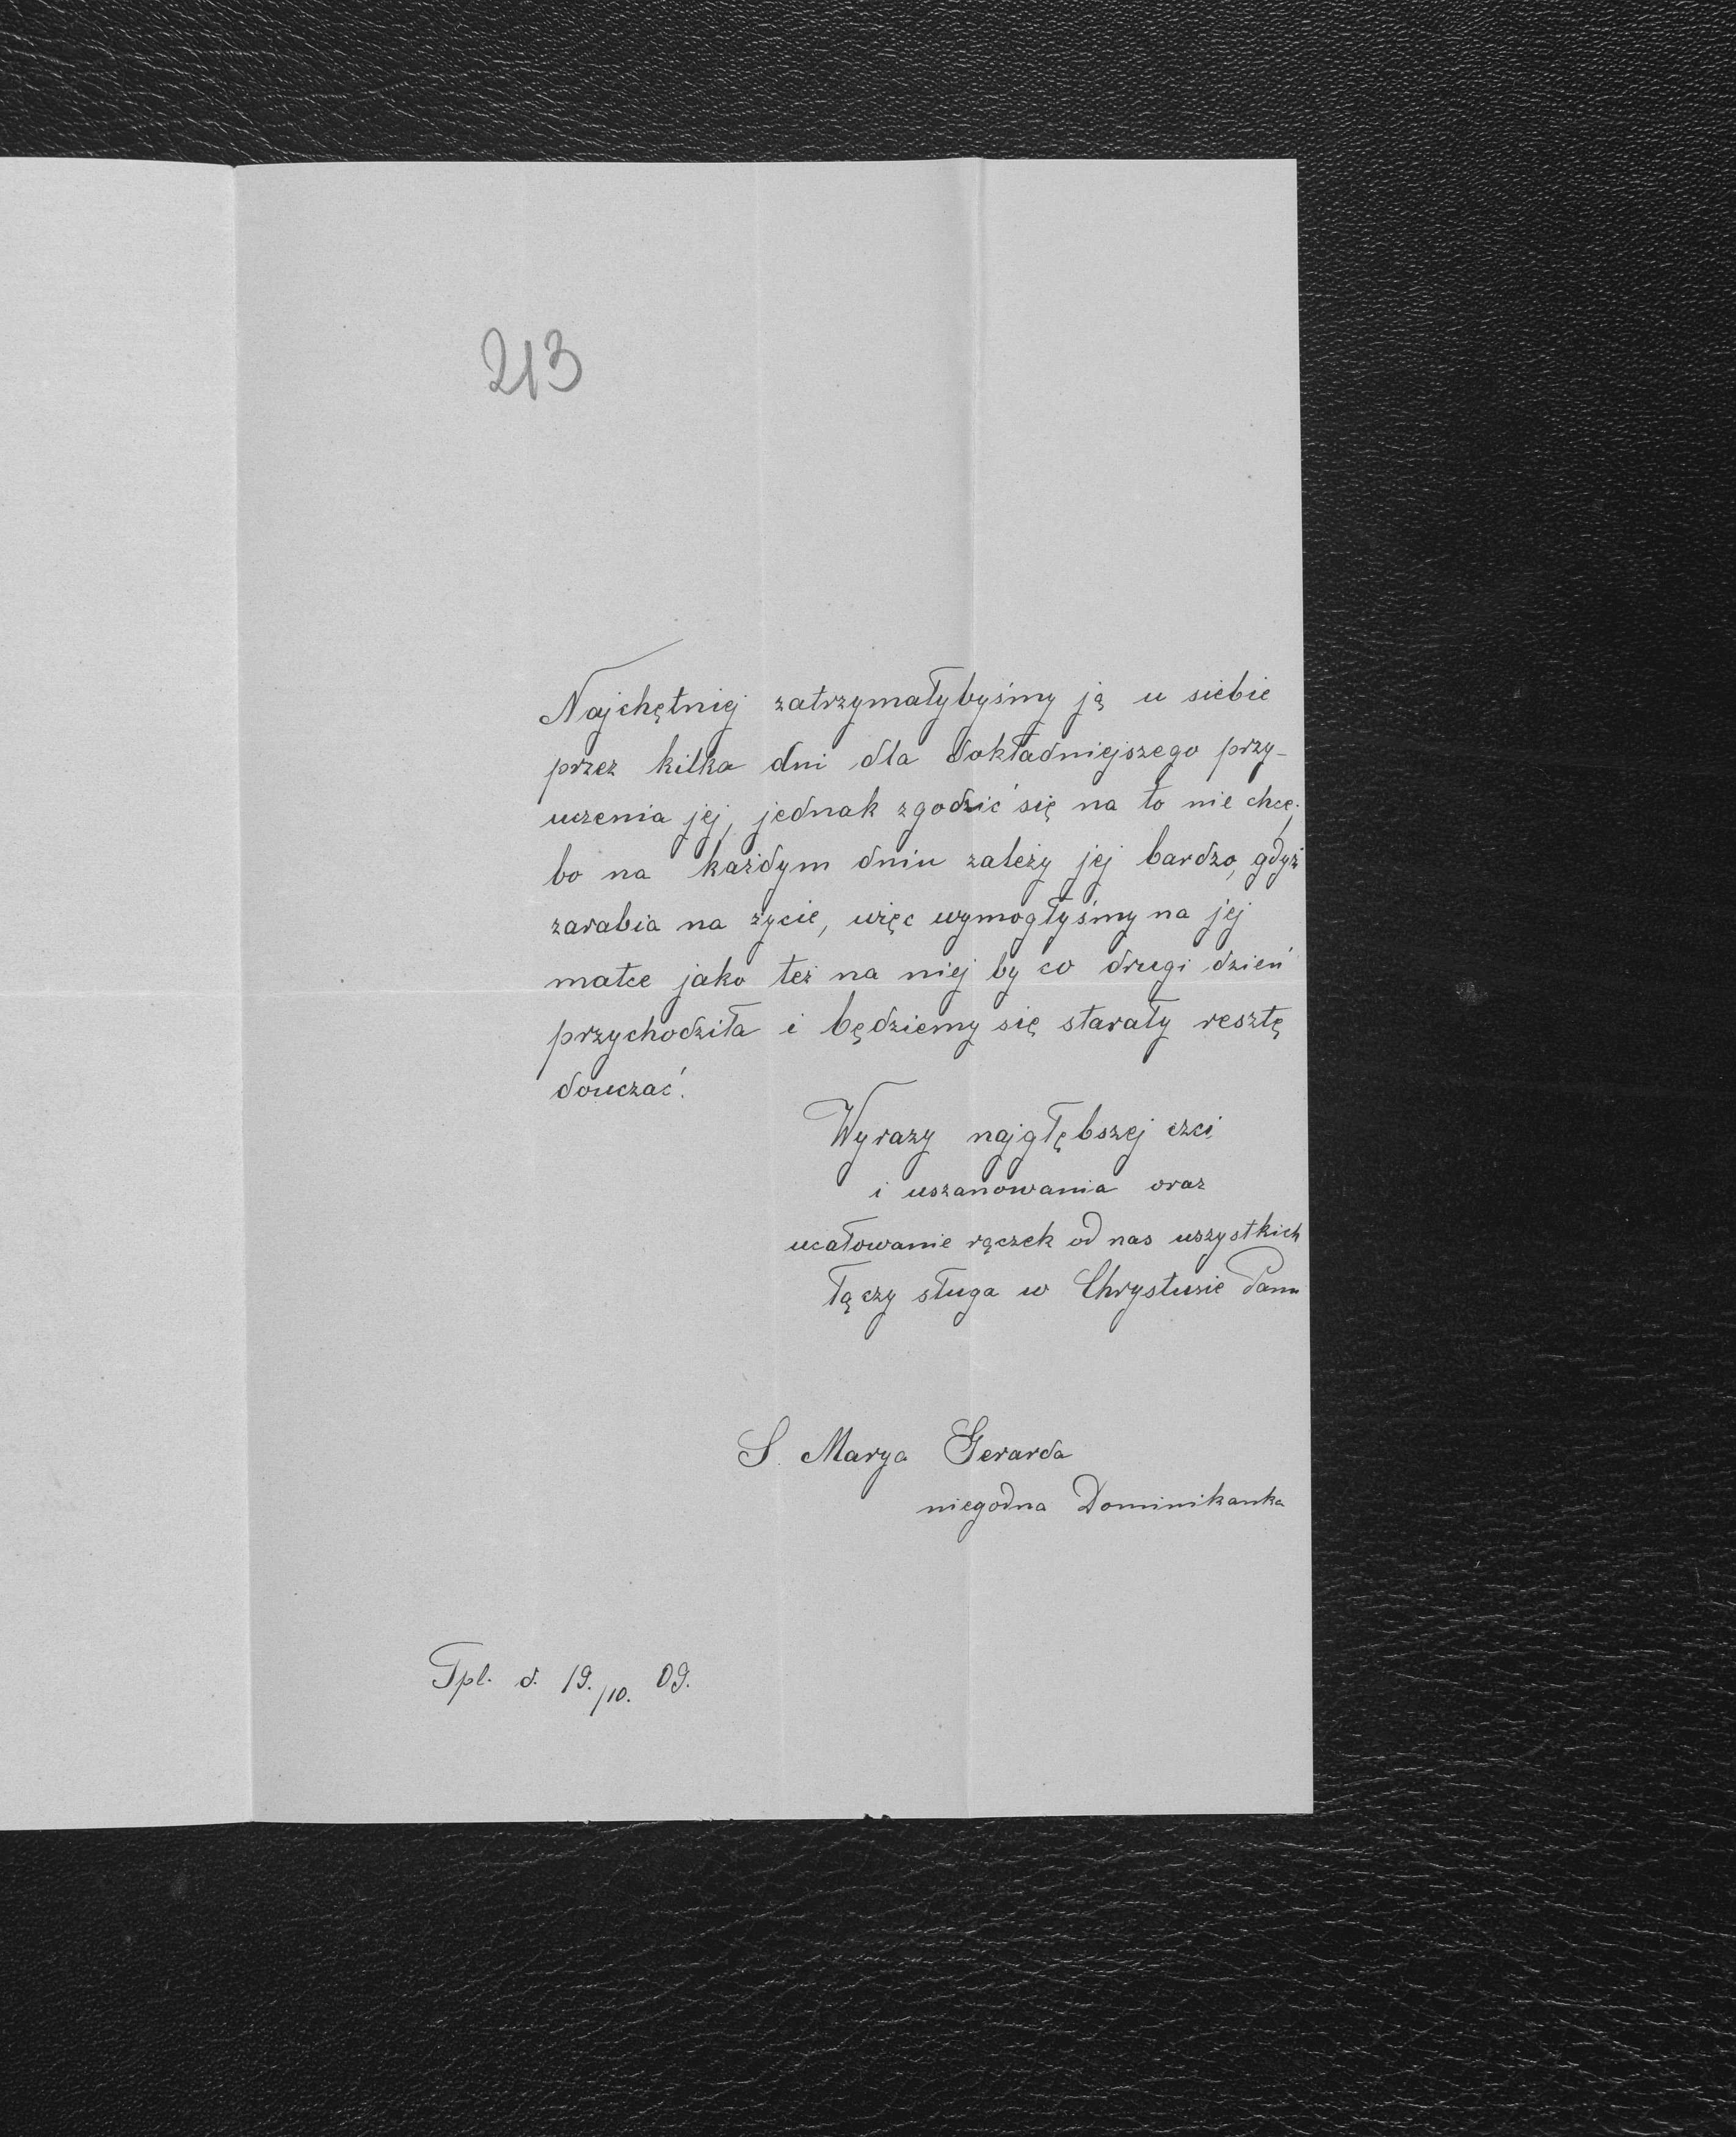 213
Najchętniej zatrzymałybyśmy ją u siebie
przez kilka dni dla dokładniejszego przy-
uczenia jej, jednak zgodzić się na to nie chce,
bo na każdym dniu zależy jej bardzo, gdyż
zarabia na życie, więc wymogłyśmy na jej
matce jako też na niej by co drugi dzień
przychodziła i będziemy się starały resztę
douczać.
Wyrazy najgłębszej czci
i uszanowania oraz
ucałowanie rączek od nas wszystkich
łączy sługa w Chrystusie Panu
S. Marya Gerarda
niegodna Dominikanka
Tpl. d. 19./10. 09.